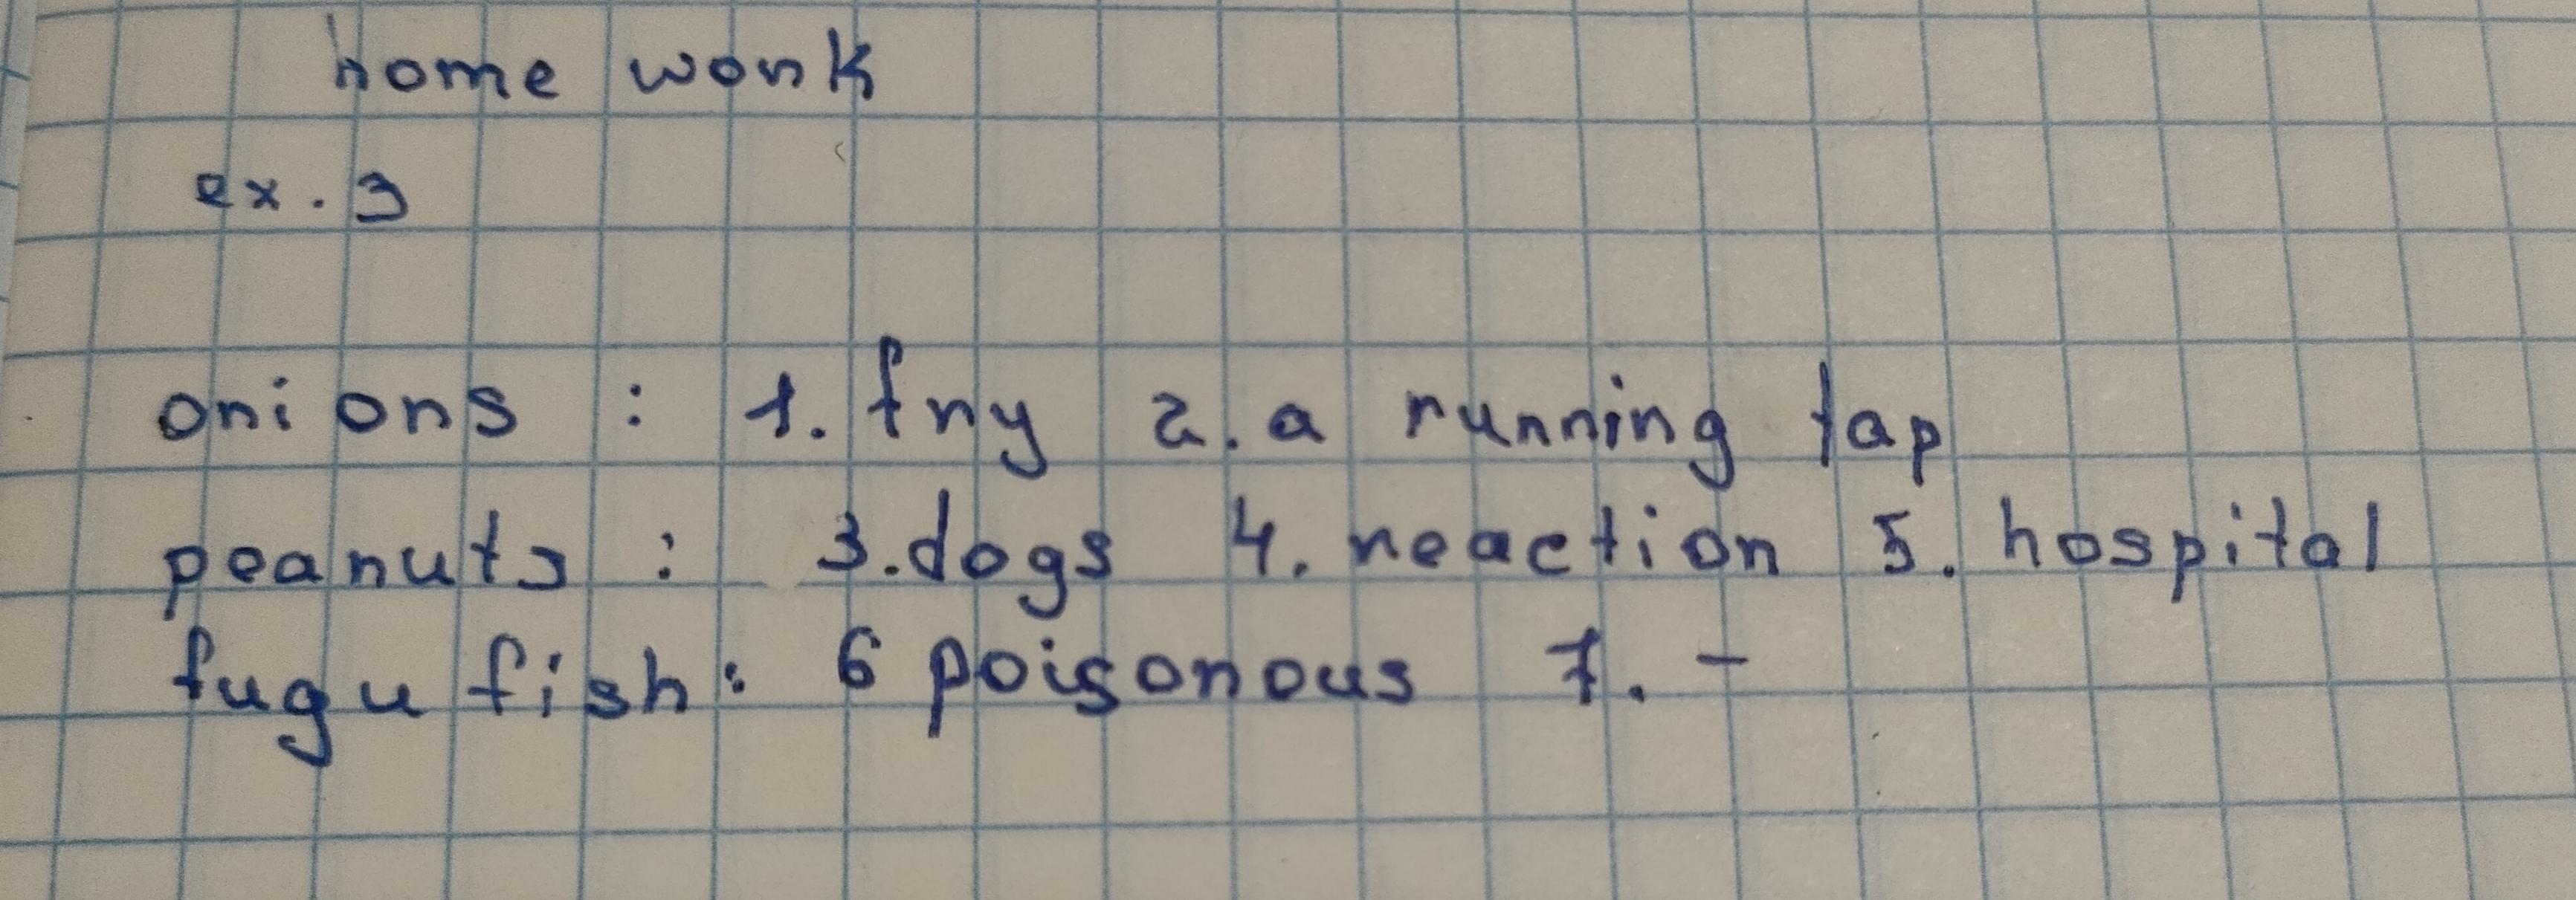 home work
ex. 3
onions : 1. fry 2. a running tap
peanuts : 3. dogs 4. reaction 5. hospital
fugu fish: 6 poisonous 7. -